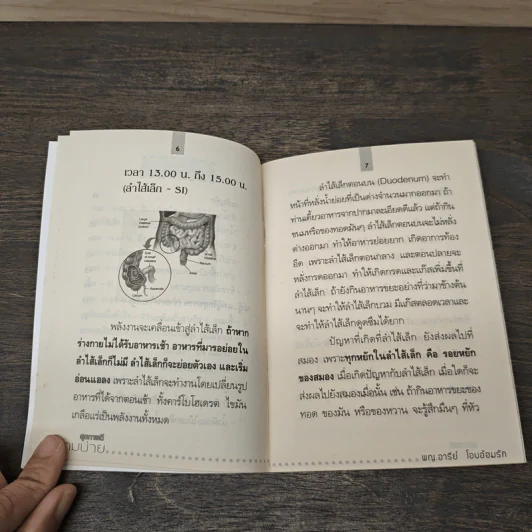 6
เวลา 13.00 น. ถึง 15.00 น.
(ลำไส้เล็ก - SI)
พลังงานจะเคลื่อนเข้าสู่ลำไส้เล็ก ถ้าหาก
ร่างกายไม่ได้รับอาหารเช้า อาหารที่มารอย่อยใน
ลำไส้เล็กก็ไม่มี ลำไส้เล็กก็จะย่อยตัวเอง และเริ่ม
อ่อนแอลง เพราะลำไส้เล็กจะทำงานโดยเปลี่ยนรูป
อาหารที่ได้จากตอนเช้า ทั้งคาร์โบไฮเดรต ไขมัน
เกลือแร่เป็นพลังงานทั้งหมด
สุขภาพดี
7
ลำไส้เล็กตอนบน (Duodenum) จะทำ
หน้าที่หลั่งน้ำย่อยที่เป็นด่างจำนวนมากออกมา ถ้า
ท่านเคี้ยวอาหารจากปากมาละเอียดดีแล้ว แต่ถ้ากิน
ขนมหรือของทอดมันๆ ลำไส้เล็กตอนบนจะไม่หลั่ง
ด่างออกมา ทำให้อาหารย่อยยาก เกิดอาการท้อง
อืด เพราะลำไส้เล็กตอนกลาง และตอนปลายจะ
หลั่งกรดออกมา ทำให้เกิดกรดและแก๊สเพิ่มขึ้นที่
ลำไส้เล็ก ถ้ายังกินอาหารขยะอย่างที่ว่ามาข้างต้น
นานๆ จะทำให้ลำไส้เล็กบวม มีแก๊สตลอดเวลาและ
จะทำให้ลำไส้เล็กดูดซึมได้ยาก
ปัญหาที่เกิดที่ลำไส้เล็ก ยังส่งผลไปที่
สมอง เพราะทุกหยักในลำไส้เล็ก คือ รอยหยัก
ของสมอง เมื่อเกิดปัญหากับลำไส้เล็ก เมื่อใดก็จะ
ส่งผลไปยังสมองเมื่อนั้น เช่น ถ้ากินอาหารขยะของ
ทอด ของมัน หรือของหวาน จะรู้สึกมึนๆ ที่หัว
พญ.อารีย์ โอบอ้อมรัก